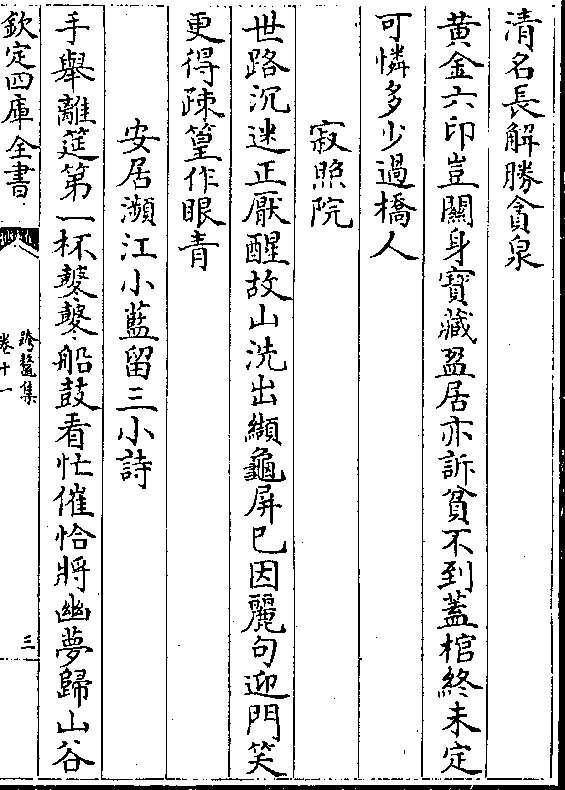 清名長解勝貪泉
黄金六印豈關身寶藏盈居亦訴貧不到蓋棺終未定
可憐多少過橋人
寂照院
世路沉迷正厭醒故山洗出纈龜屏已因麗句迎門笑
更得疎篁作眼青
安居瀕江小藍留三小詩
手舉離筵第一杯鼕鼕船鼓看忙催恰將幽夢歸山谷
欽定四庫全書
跨鼇集
卷十一
三